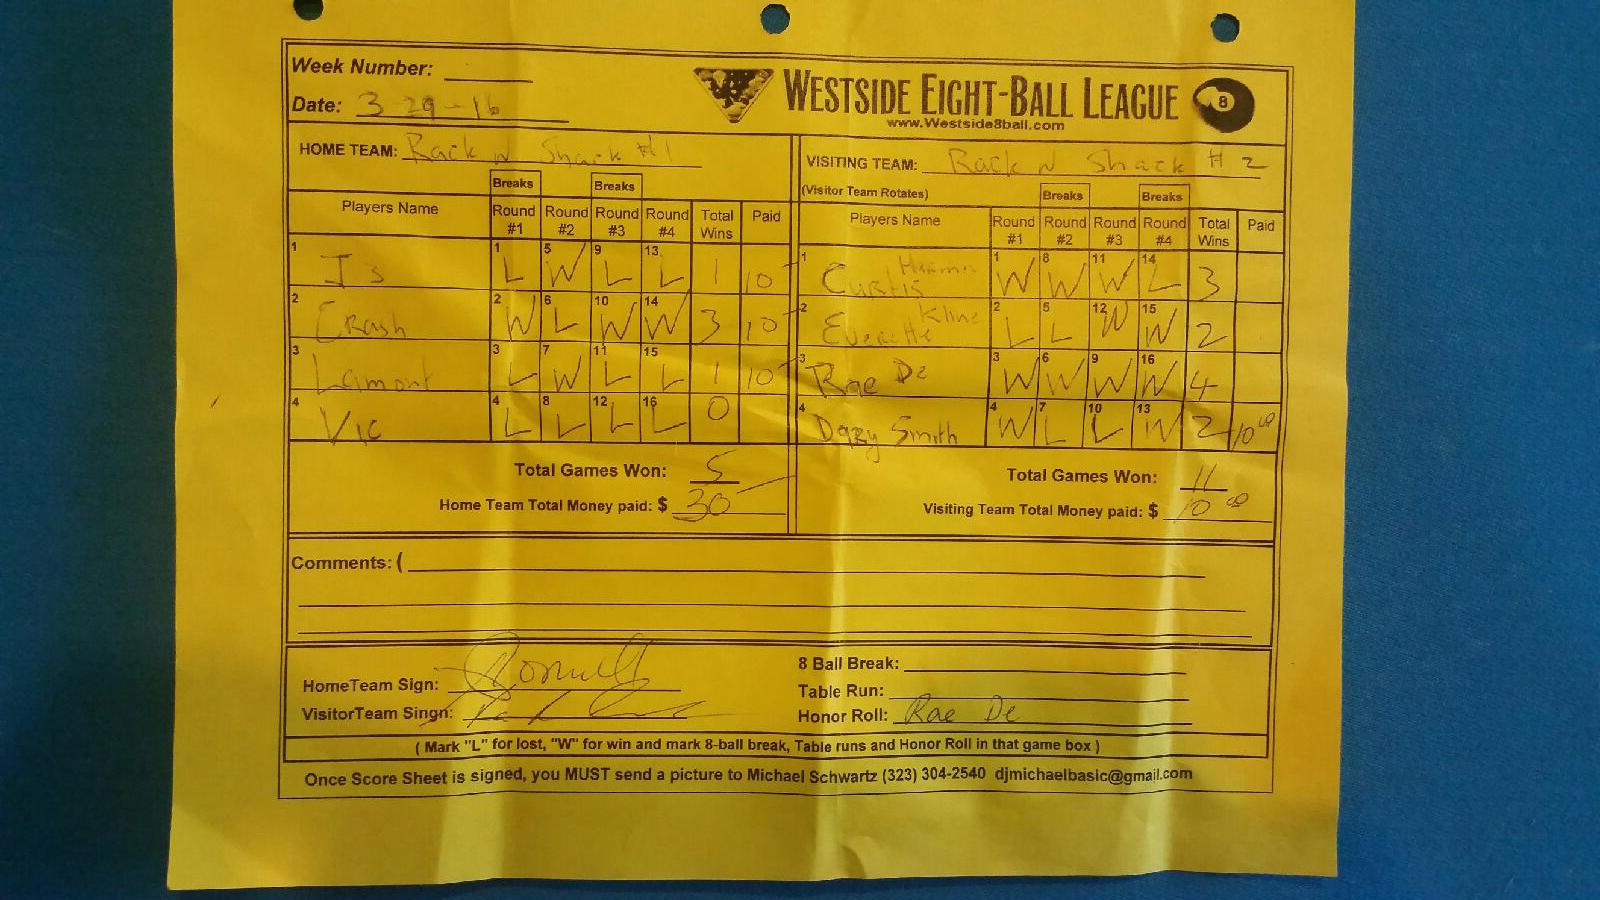 Week Number:
Date: 3-29-16
WESTSIDE EIGHT-BALL LEAGUE 8
www.Westside8ball.com
HOME TEAM: Rack N Shack #1
VISITING TEAM: Rack N Shack # 2
(Visitor Team Rotates)
Breaks Breaks Breaks Breaks
Players Name Round #1 Round #2 Round #3 Round #4 Total Wins Paid
Players Name Round #1 Round #2 Round #3 Round #4 Total Wins Paid
1 1 L 5 W 9 L 13 L 1 10
1 Curtis 1 W 8 W 11 W 14 L 3
2 Crash 2 W 6 L 10 W 14 W 3 10
2 Everette Kline 2 L 5 L 12 W 15 W 2
3 Lamont 3 L 7 W 11 L 15 L 1 10
3 Rae De 3 W 6 W 9 W 16 W 4
4 Vic 4 L 8 L 12 L 16 L 0
4 Smith 4 W 7 L 10 L 13 W 2 10 00
Total Games Won: 5
Total Games Won: 11
Home Team Total Money paid: $ 30
Visiting Team Total Money paid: $ 10 00
Comments: (
HomeTeam Sign:
VisitorTeam Singn:
8 Ball Break:
Table Run:
Honor Roll: Rae De
( Mark "L" for lost, "W" for win and mark 8-ball break, Table runs and Honor Roll in that game box )
Once Score Sheet is signed, you MUST send a picture to Michael Schwartz (323) 304-2540 djmichaelbasic@gmail.com